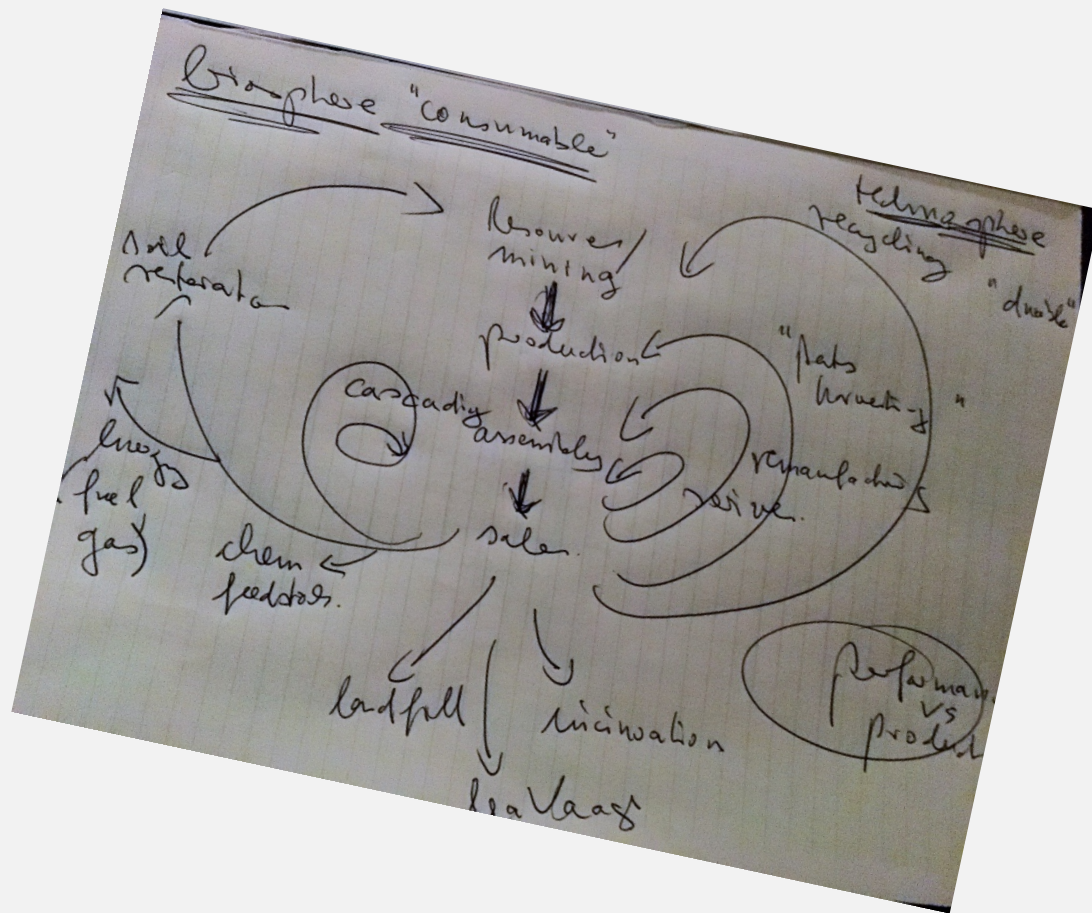 biosphere "consumable"
technosphere
recycling
"durable"
Resources/
mining
soil
restoration
production
"parts
harvesting"
cascading
assembly
remanufacturing
service
energy
fuel
gas)
sales.
chem
feedstocks.
landfill
incineration
leakage
performan
vs
product